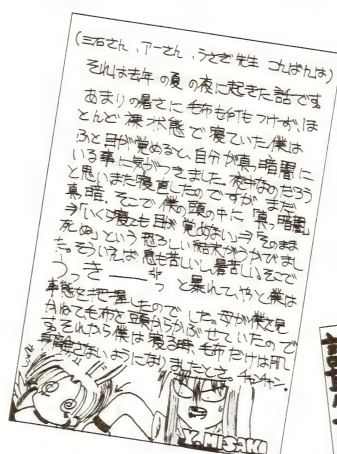 (三石さん、アーさん、うさぎ先生 こんばんは)
それは去年の夏の夜に起きた話です。
あまりの暑さに毛布も何もつけず、ほ
とんど裸状態で寝ていた僕は
ふと目が覚めると、自分が真っ暗闇に
いる事に気がつきました。夜中なのだろう
と思いまた寝直したのですが、まだ
真っ暗。そこで僕の頭の中に「真っ暗闇
いくら寝ても目が覚めない そのまま
死ぬ」という恐ろしい結末がうかびまし
た。そういえば息も苦しいし、暑苦しい。そこで
うっきーーっ と暴れてやっと僕は
事態を把握したのでした。母が僕を見
かねて毛布を頭からかぶせていたので
す。それから僕は寝る時、毛布だけは
離さないようになりましたとさ。チャンチャン。
Y.MISAKI